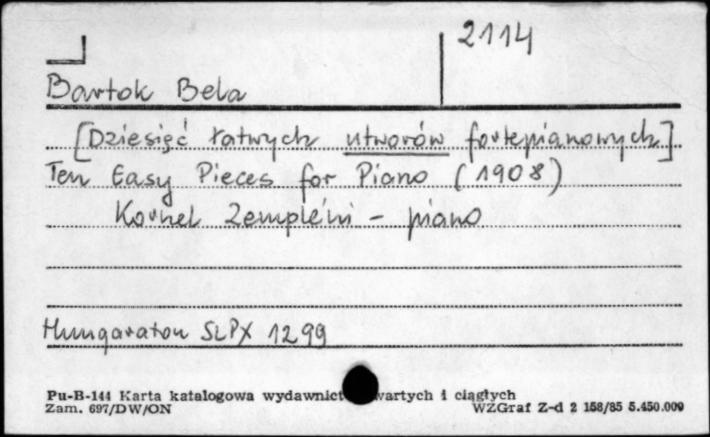 2114
Bartok Bela
[Dziesięć łatwych utworów fortepianowych]
Ten Easy Pieces for Piano (1908)
Kornel Zempléni - piano
Hungaraton SLPX 1299
Pu-B-144 Karta katalogowa wydawnict wartych i ciągłych
Zam. 697/DW/ON WZGraf Z-d 2 158/85 5.450.000